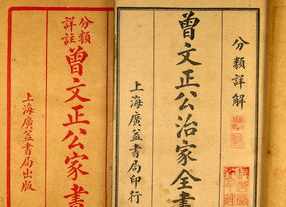 分類詳解
曾文正公治家全書
上海廣益書局印行
分類
詳註
曾文正公家書
上海廣益書局出版